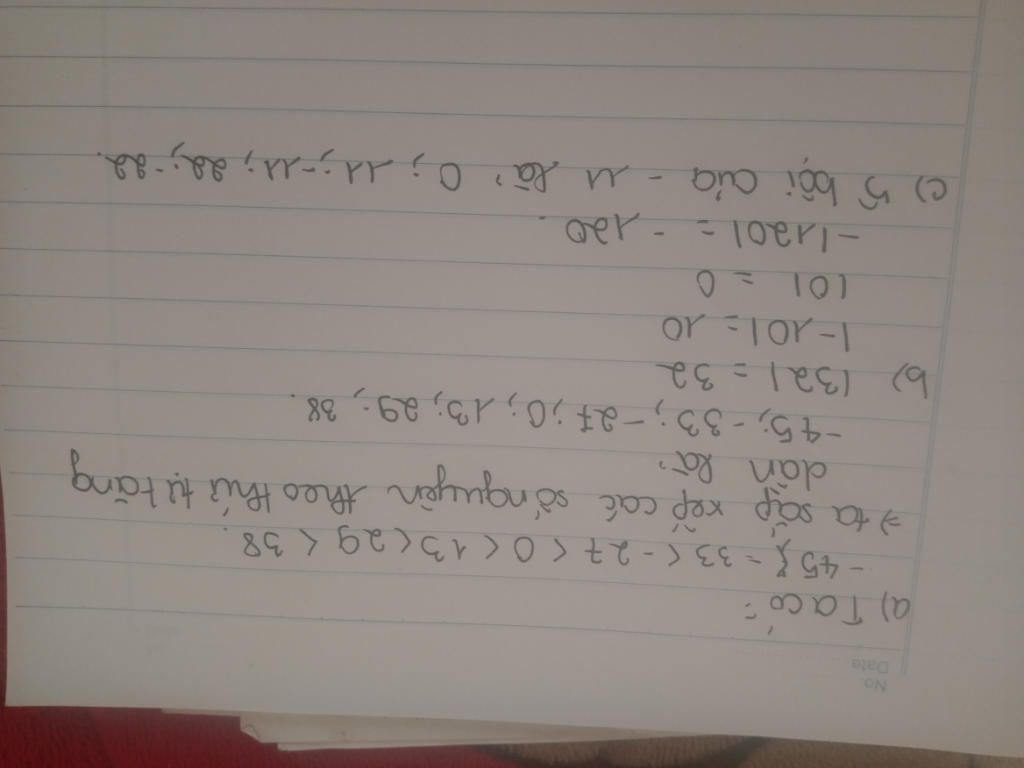 No.
Date
a) Ta có:
-45 < -33 < -27 < 0 < 13 < 29 < 38.
=> ta sắp xếp các số nguyên theo thứ tự tăng
dần là:
-45; -33; -27; 0; 13; 29; 38.
b) |32| = 32
|-10| = 10
|0| = 0
-|120| = -120.
c) 5 bội của -11 là: 0; 11; -11; 22; -22.